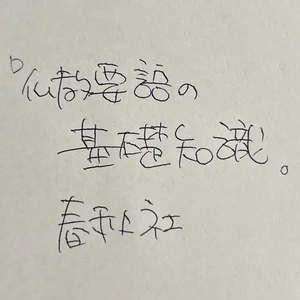 仏教要語の
基礎知識。
春秋社